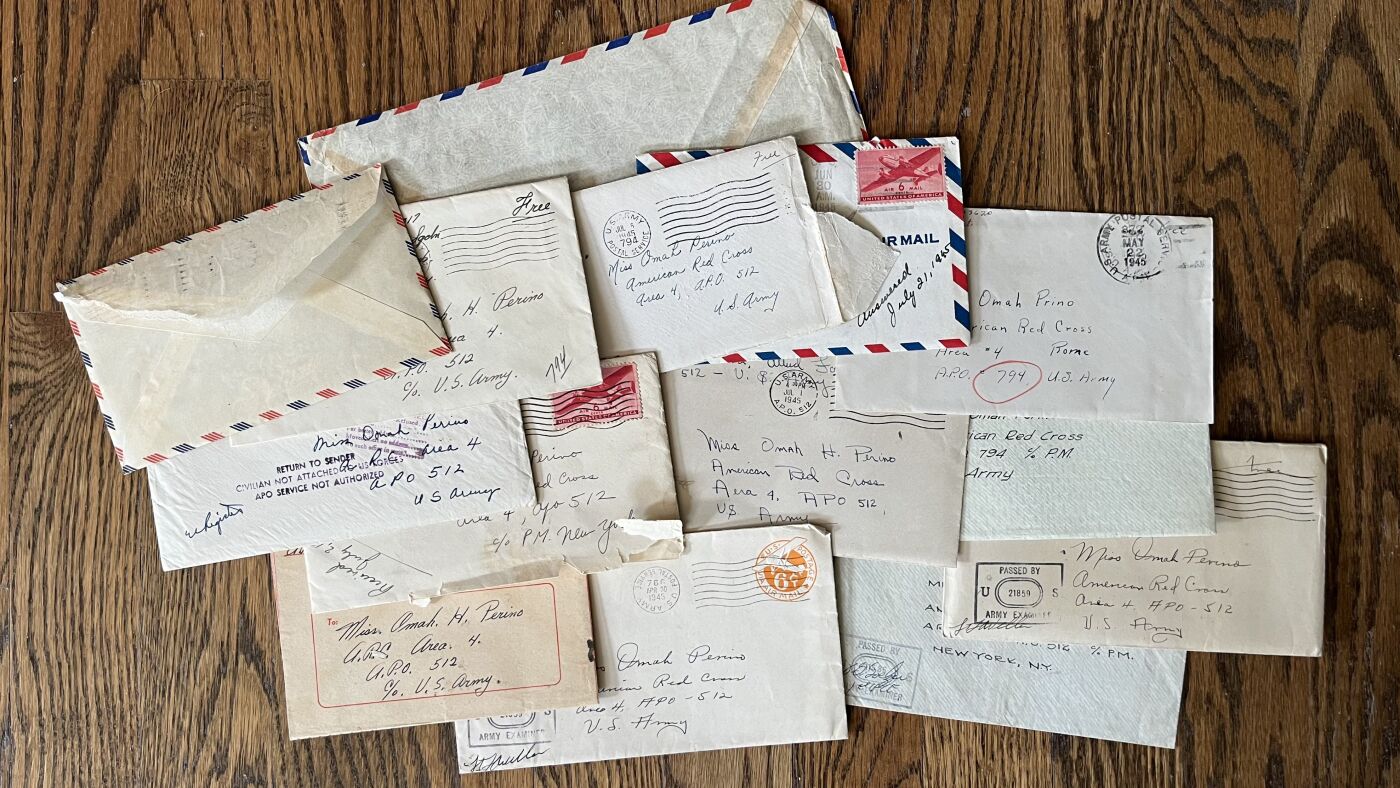 Free
H. Perino
ea 4.
A.P.O. 512
c/o U.S. Army.
794
Free
U.S. ARMY
JUL 5
1945
794
POSTAL SERVICE
Miss Omah Perino
American Red Cross
Area 4, A.P.O. 512
U.S. Army
AIR 6 MAIL
UNITED STATES OF AMERICA
IR MAIL
Answered
July 21, 1945
U.S. ARMY POSTAL SERVICE
MAY
22
1945
Omah Prino
rican Red Cross
Area #4 Rome
A.P.O. 794 U.S. Army
Miss Omah Perino
Area 4
APO 512
US Army
RETURN TO SENDER
CIVILIAN NOT ATTACHED US FORCES
APO SERVICE NOT AUTHORIZED
Perino
d Cross
Area 4, Apo 512
c/o P.M. New York
Received
July 2
512 - U.S.
U.S. ARMY
JUL 1
1945
A.P.O. 512
Miss Omah H. Perino
American Red Cross
Aera 4, APO 512,
US Army
ican Red Cross
794 % P.M.
Army
To:
Miss. Omah. H. Perino
A.R.C. Area. 4.
A.P.O. 512
c/o U.S. Army.
766
APR 30
1945
U.S. ARMY
POSTAL SERVICE
U.S. POSTAGE
6¢
AIR MAIL
Omah Perino
erican Red Cross
Area 4, APO - 512
U.S. Army
21859 S
ARMY EXAMINER
PASSED BY
U 21859 S
ARMY EXAMINER
Miss Omah Perino
American Red Cross
Area 4, APO 512
U.S. Army
PASSED BY
.O. 512 % PM.
NEW YORK, NY.